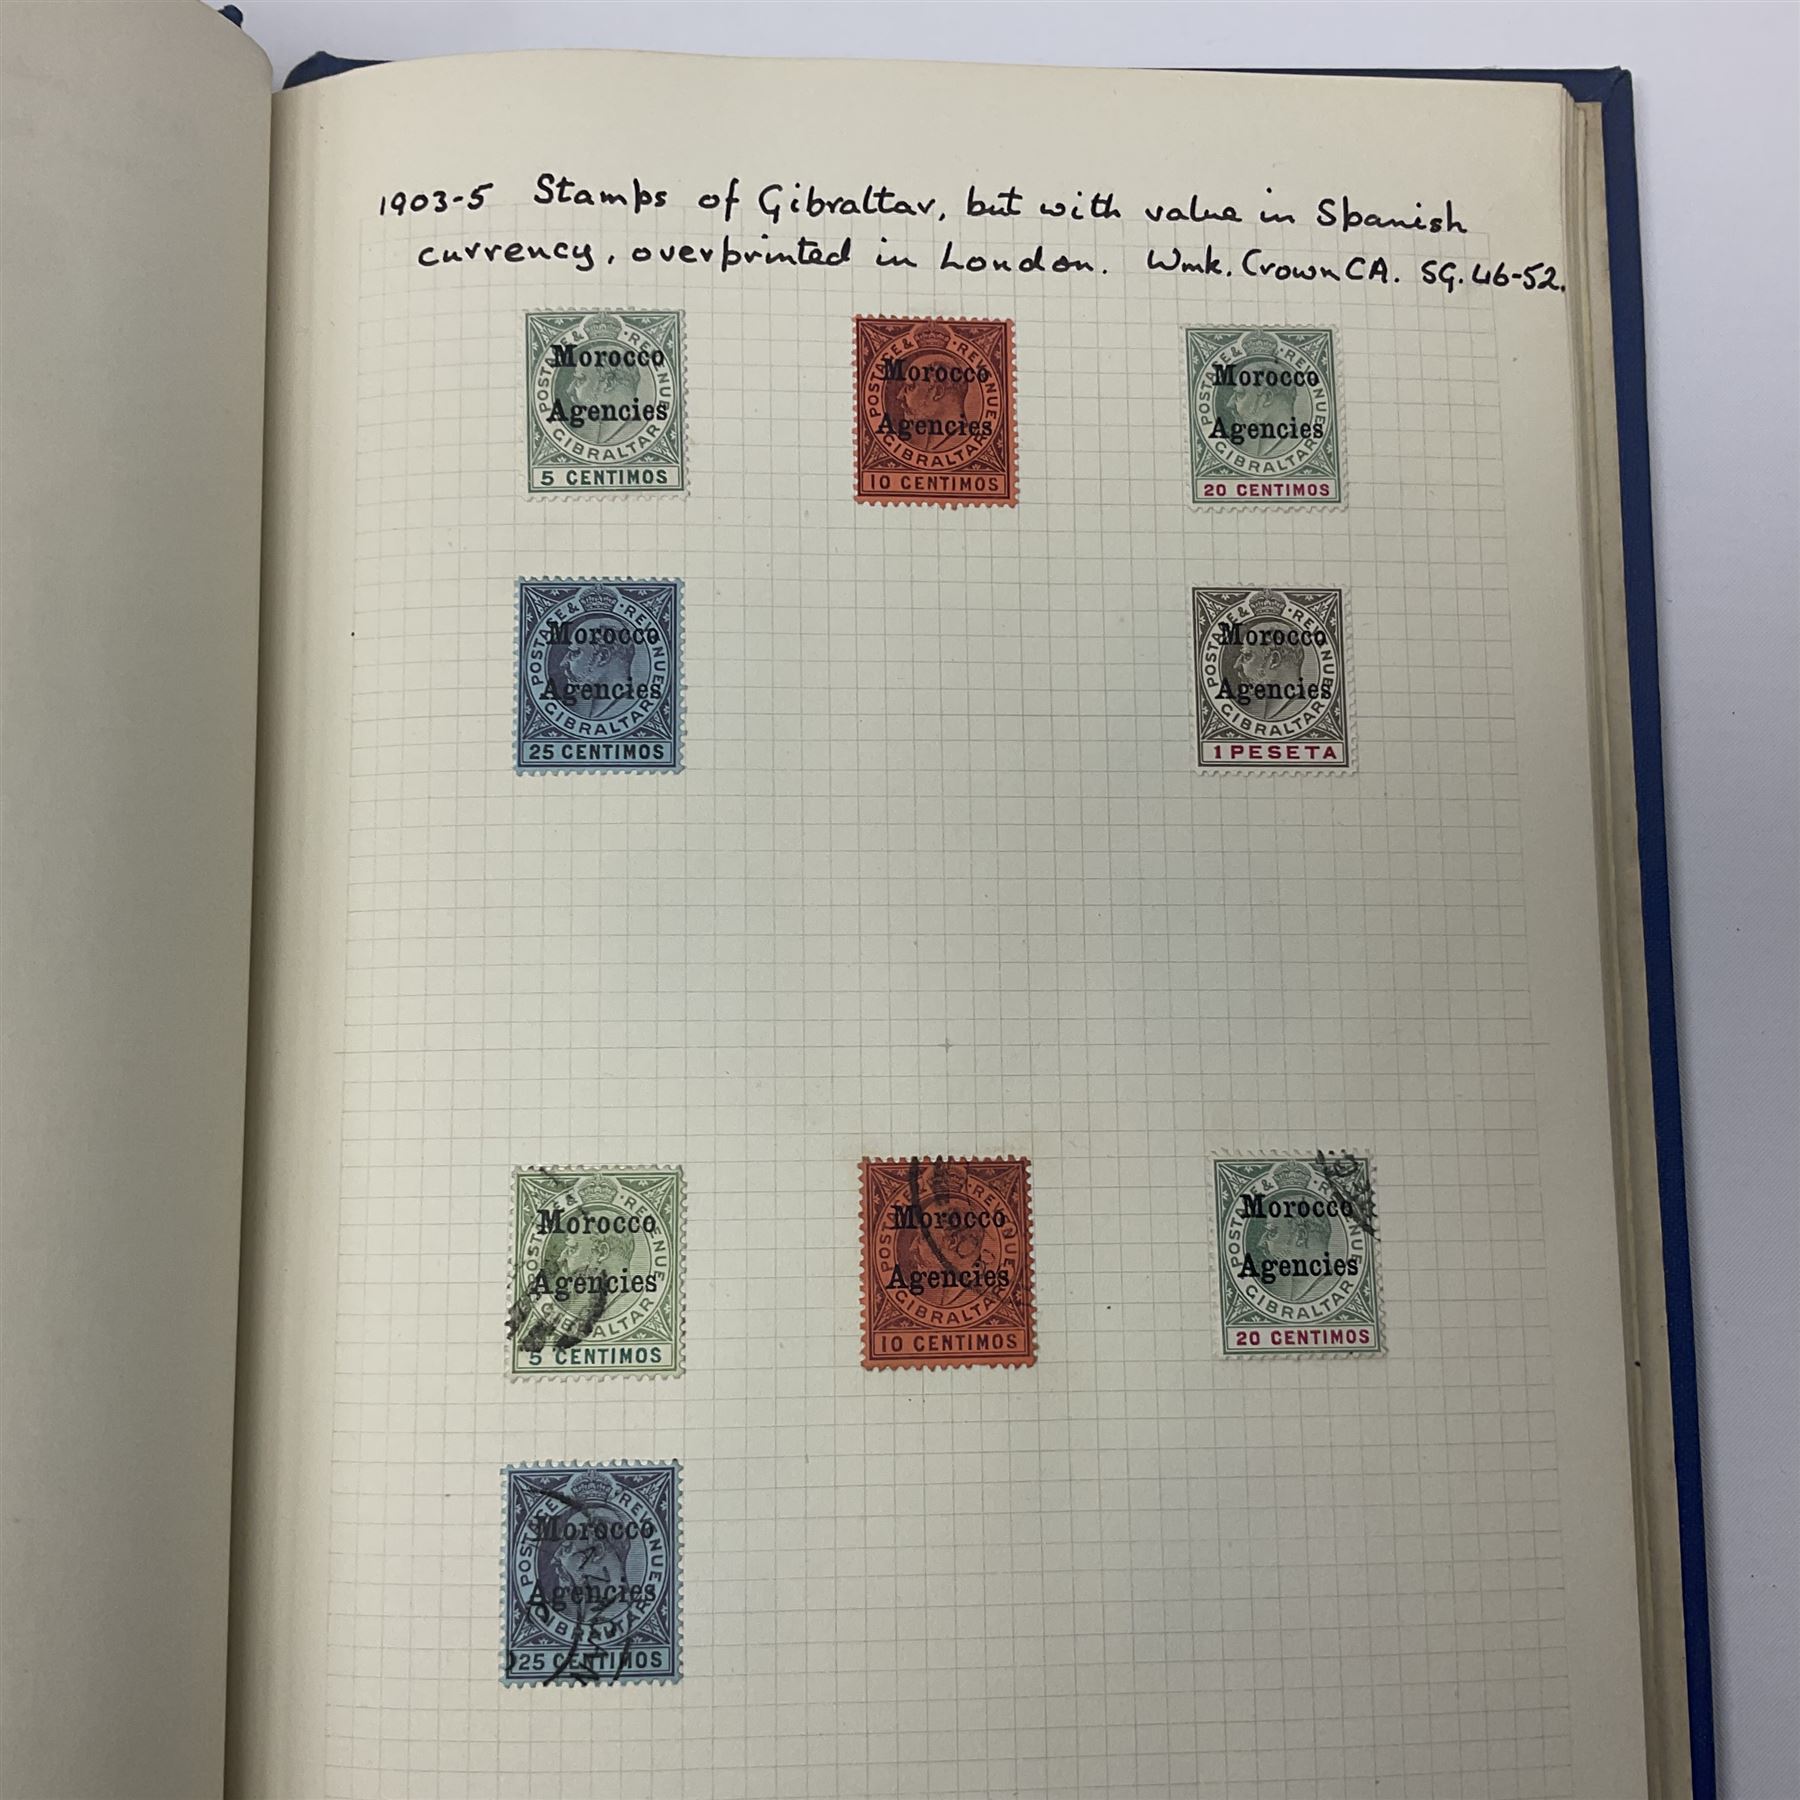 1903-5 Stamps of Gibraltar, but with value in Spanish
currency, overprinted in London. Wmk. Crown CA. SG. 46-52.
POSTAGE & REVENUE
Morocco
Agencies
GIBRALTAR
5 CENTIMOS
POSTAGE & REVENUE
Morocco
Agencies
GIBRALTAR
10 CENTIMOS
POSTAGE & REVENUE
Morocco
Agencies
GIBRALTAR
20 CENTIMOS
POSTAGE & REVENUE
Morocco
Agencies
GIBRALTAR
25 CENTIMOS
POSTAGE & REVENUE
Morocco
Agencies
GIBRALTAR
1 PESETA
POSTAGE & REVENUE
Morocco
Agencies
GIBRALTAR
5 CENTIMOS
POSTAGE & REVENUE
Morocco
Agencies
GIBRALTAR
10 CENTIMOS
POSTAGE & REVENUE
Morocco
Agencies
GIBRALTAR
20 CENTIMOS
POSTAGE & REVENUE
Morocco
Agencies
GIBRALTAR
25 CENTIMOS